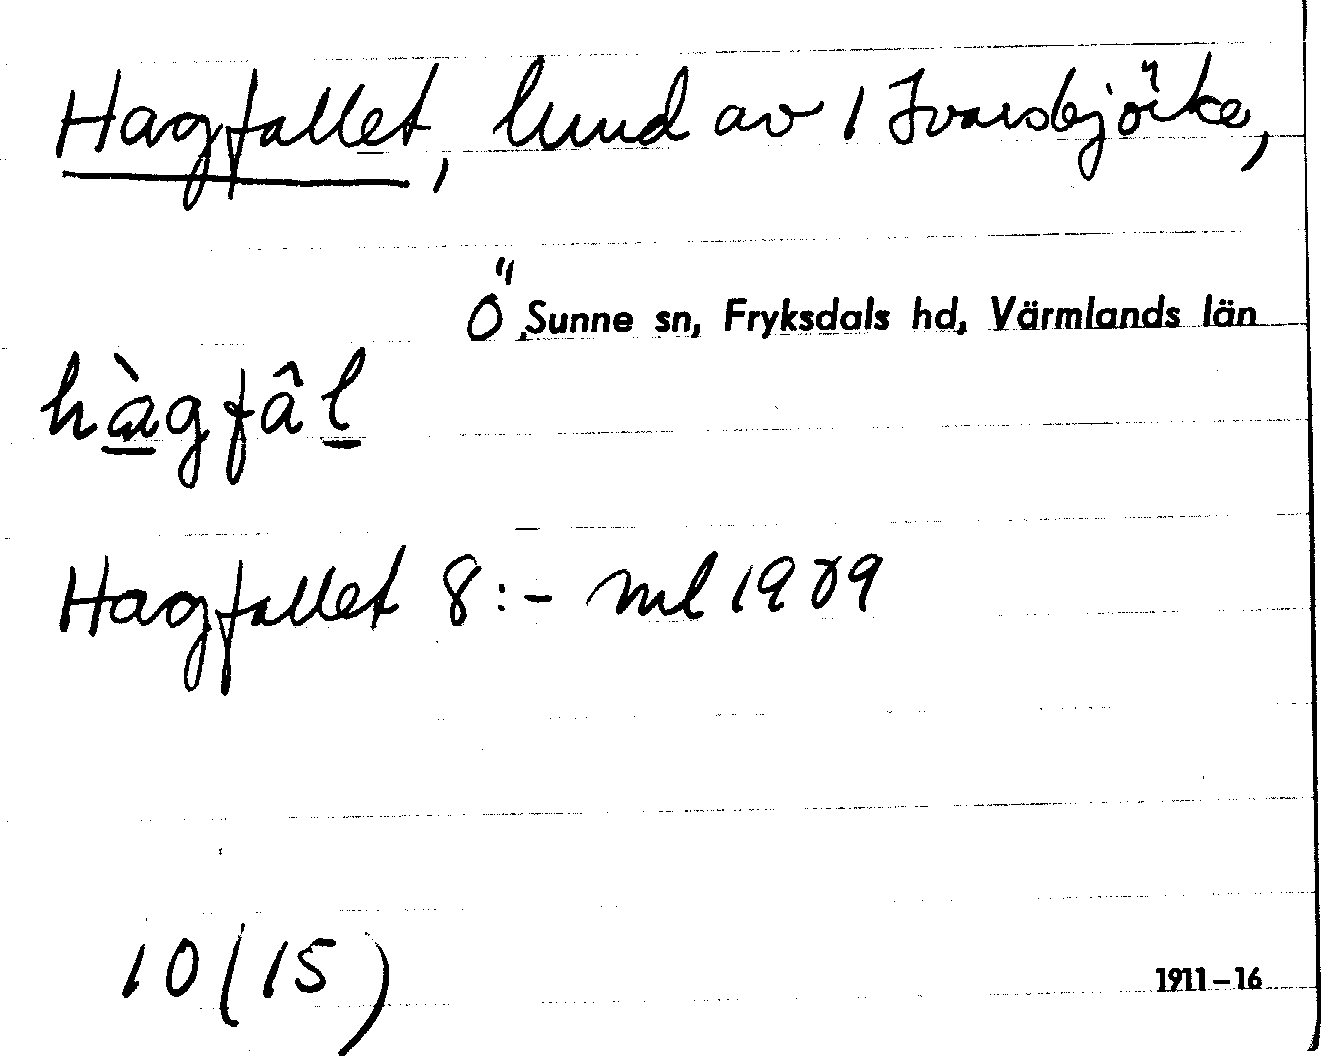 Hagfallet, lund av 1 Ivarsbjörke,
Ö Sunne sn, Fryksdals hd, Värmlands län
hàgfâl
Hagfallet 8:- ml 1909
10(15)
1911–16